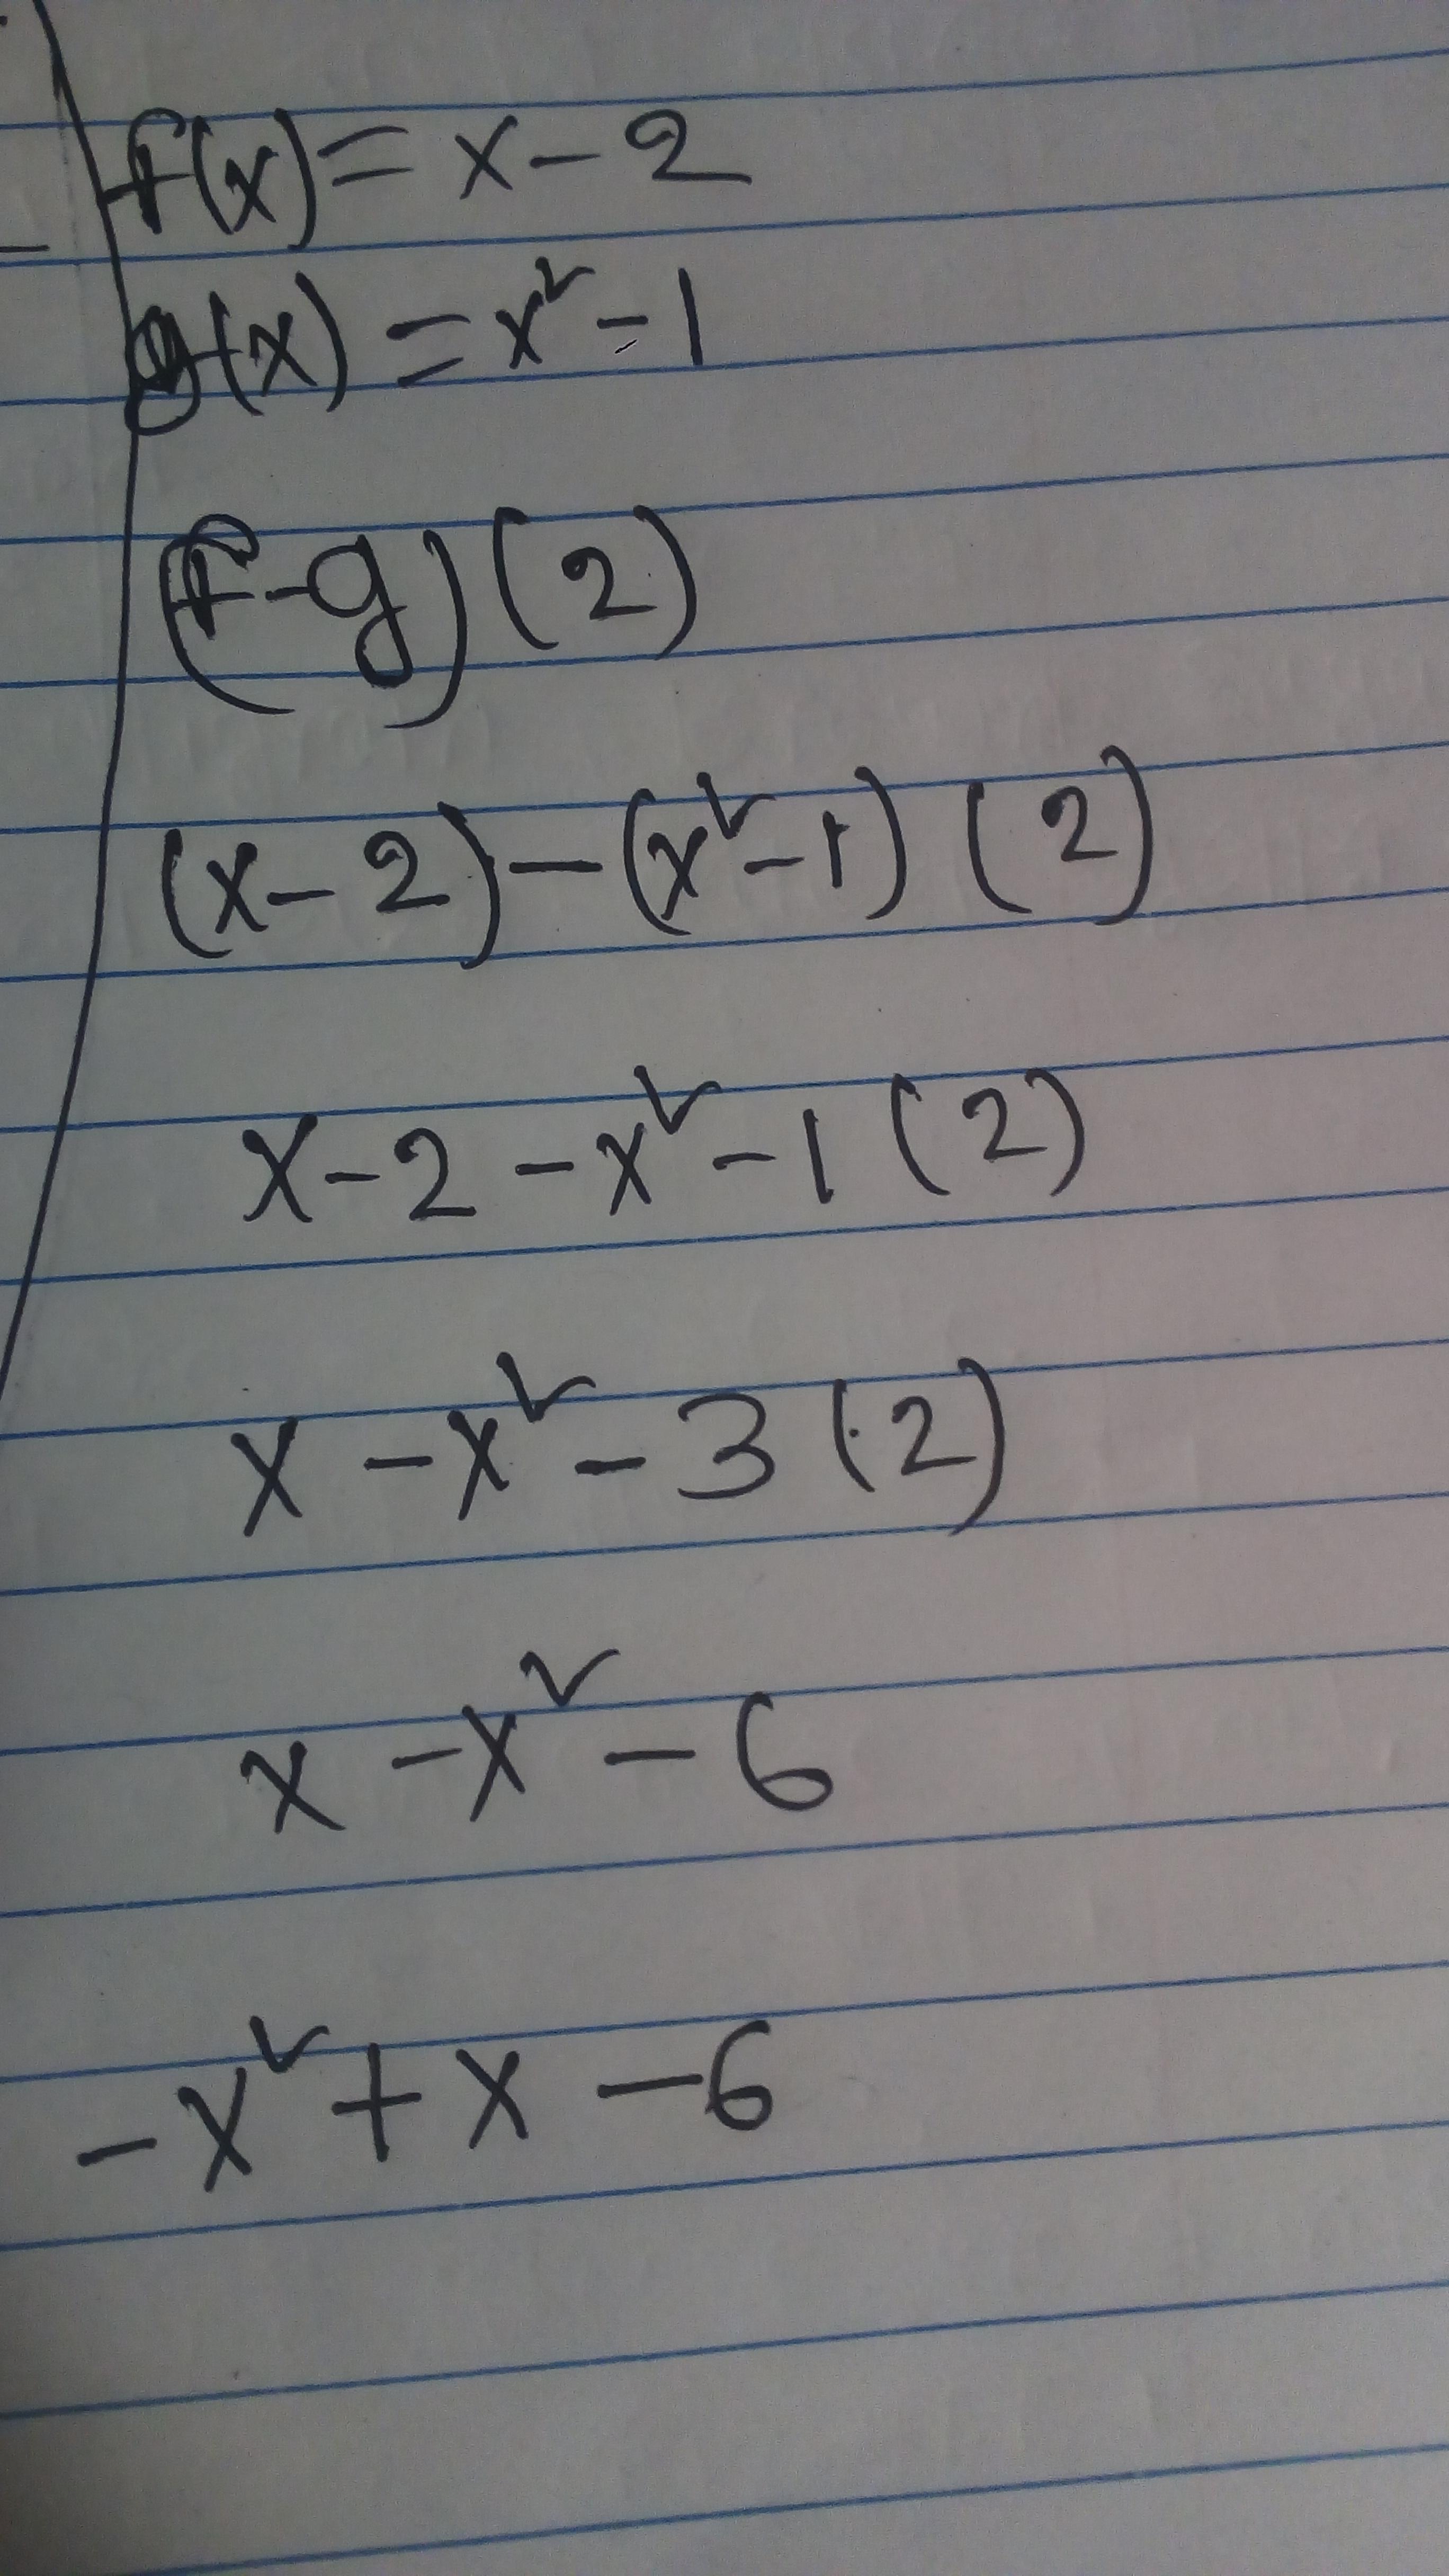 f(x) = x - 2
g(x) = x² - 1
(f-g)(2)
(x-2) - (x²-1) (2)
x - 2 - x² - 1 (2)
x - x² - 3 (2)
x - x² - 6
-x² + x - 6